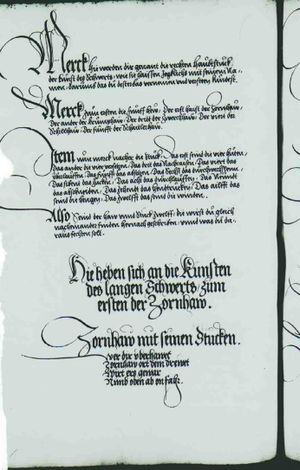 Merck hie werden dir genant die rechten haubtstuck
der kunst des Schwerts, wie sie haissen yegklichs mit seinem Na-
men, darumb das du dester das vernemen und versten kundest.
Merck zum ersten die funff hew. Der erst haist der Zornhaw.
Der ander der krumphaw. Der drit der Zwerchhaw. Der vierd der
Schilhaw. Der funfft der Schaittelhaw.
Item nun merck mer die stuck. Das erst send die vier huten.
Das ander die vier versetzen. Das drit das Nachraisen. Das viert das
uberlauffen. Das funfft das absetzen. Das sechst das durchwechslen.
Das sibend das zucken. Das acht das durchlauffen. Das Neundt
das abschneiden. Das zehendt das henndtrucken. Das ailfft das
send die hengen. Das zwelfft das send die winden.
Also Send der haw unnd stuck
nacheinander hernach geschriben, unnd was du da-
raus fechten solt.
Hie heben sich an die Kunsten
des langen Schwerts, zum
ersten der Zornhaw.
Zornhaw mit seinen Stucken.
Wer dir oberhawet
Zornhaw ort dem drewet
Wirt ers gewar
Nimb oben ab on far